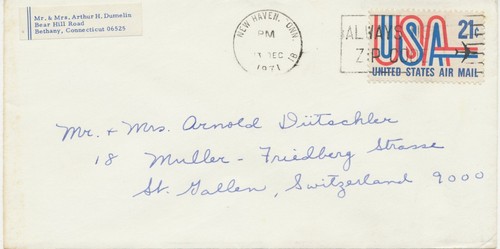 Mr. & Mrs. Arthur H. Dumelin
Bear Hill Road
Bethany, Connecticut 06525
NEW HAVEN, CONN.
PM
DEC
1971
ALWAYS
ZIP CODE
USA 21c
UNITED STATES AIR MAIL
Mr. + Mrs. Arnold Dütschler
18 Muller - Friedberg Strasse
St. Gallen, Switzerland 9000